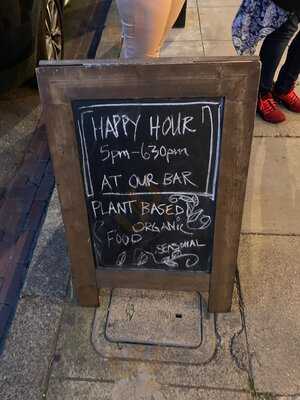 HAPPY HOUR
5pm-630pm
AT OUR BAR
PLANT BASED
ORGANIC
FOOD
SEASONAL